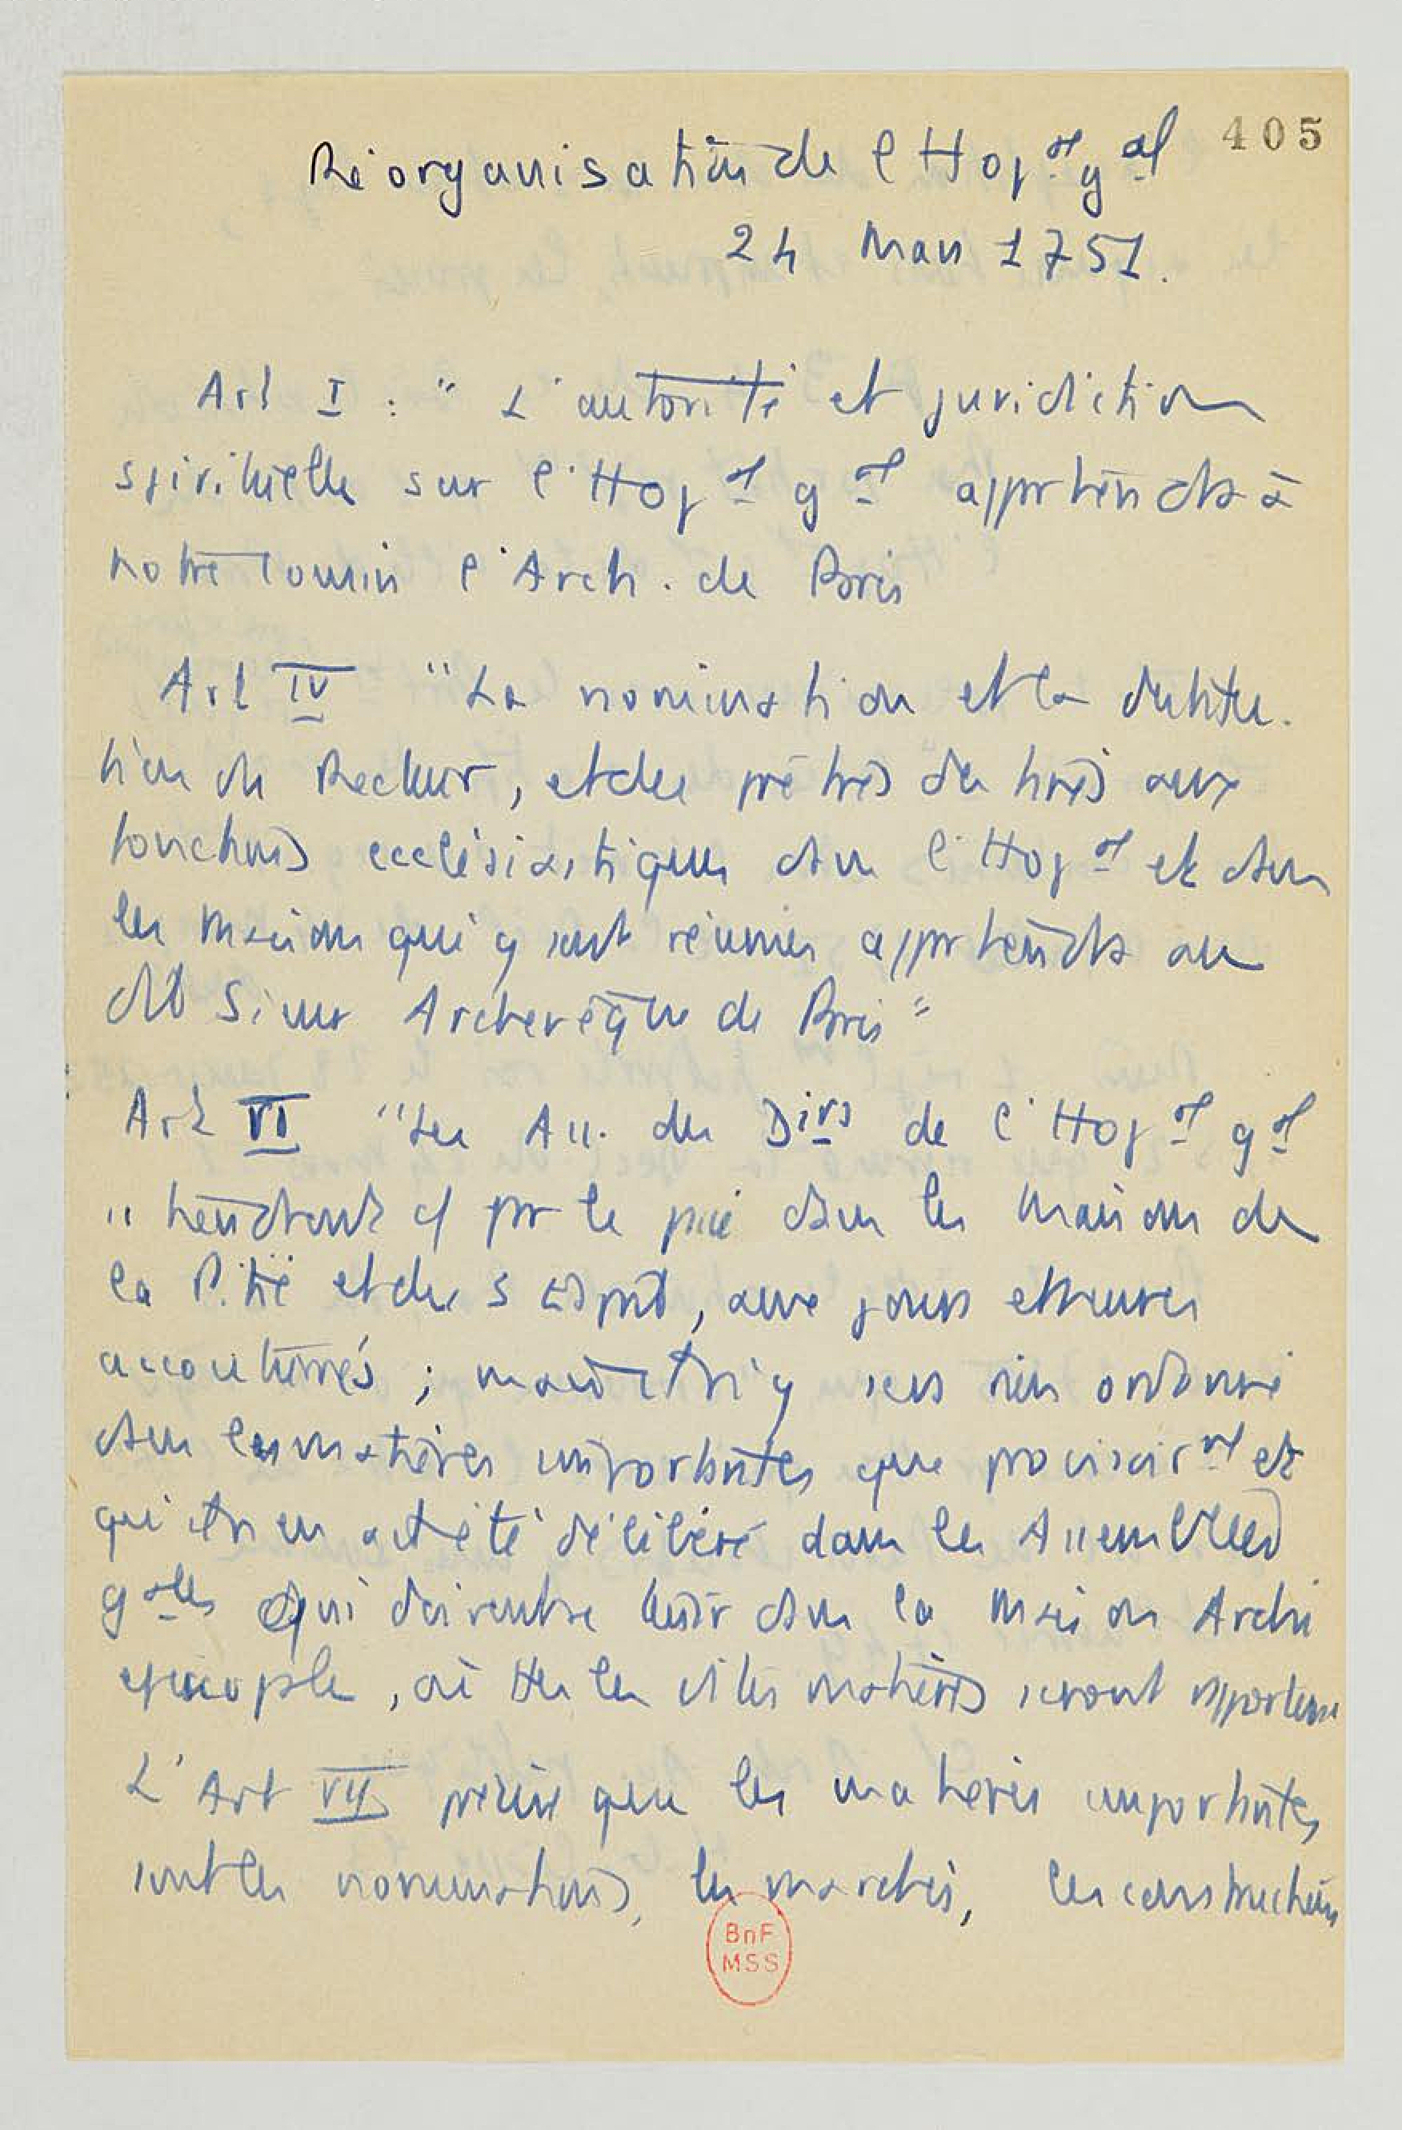 405
Réorganisation de l'Hopal gal
24 Mars 1751.
Art I : " L'autorité et juridiction
spirituelle sur l'Hopal gal appartiendra à
notre cousin l'Arch. de Paris
Art IV "La nomination et la destitu-
tion du Recteur, et des prêtres destinés aux
fonctions ecclésiastiques dans l'Hopal et dans
les maisons qui y sont réunies appartiendra au
dit Sieur Archevêque de Paris"
Art VI "Les Ass. des Dirs de l'Hopal gal
se tiendront par le passé dans les maisons de
la Pitié et du S Esprit, aux jours et heures
accoutumés ; il n'y sera rien ordonné
dans les matières importantes que provisoirmt et
qu'il n'en ait été délibéré dans les Assemblées
gales qui doivent se tenir dans la maison Archi
épiscople, où ttes les dites matières seront rapportées
L'Art VII précise que les matières importantes
sont les nominations, les marchés, les constructions
BnF
MSS